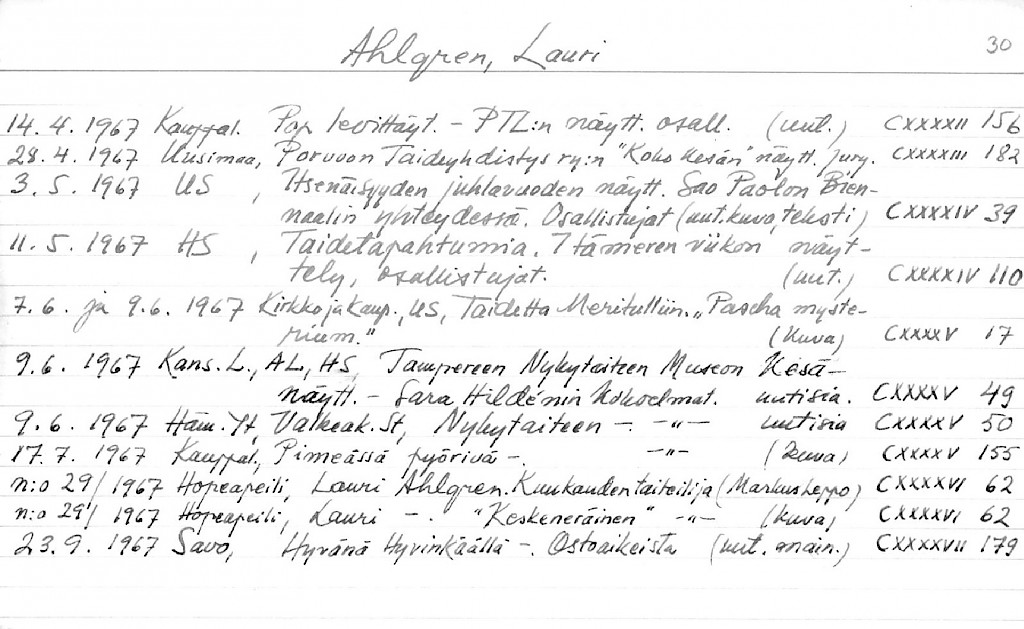 30
Ahlgren, Lauri
14. 4. 1967 Kauppal. Pop levittäyt. - PTL:n näytt. osall. (uut.) CXXXXII 156
28. 4. 1967 Uusimaa, Porvoon Taideyhdistys ry:n "Koko kesän" näytt. jury. CXXXXIII 182
3. 5. 1967 US , Itsenäisyyden juhlavuoden näytt. Sao Paolon Bien-
naalin yhteydessä. Osallistujat (uut. kuva, teksti) CXXXXIV 39
11. 5. 1967 HS , Taidetapahtumia. Itämeren viikon näyt-
tely, osallistujat. (uut.) CXXXXIV 110
7. 6. ja 9. 6. 1967 Kirkko ja kaup., US, Taidetta Meritulliin. „Pascha myste-
rium." (kuva) CXXXXV 17
9. 6. 1967 Kans. L., AL, HS, Tampereen Nykytaiteen Museon Kesä-
näytt. - Sara Hildénin Kokoelmat. uutisia. CXXXXV 49
9. 6. 1967 Häm. Yt, Valkeak. St, Nykytaiteen -. -"- uutisia CXXXXV 50
17. 7. 1967 Kauppal., Pimeässä pyörivä -. -"- (kuva) CXXXXV 155
n:o 29/1967 Hopeapeili, Lauri Ahlgren. Kuukauden taiteilija (Markus Leppo) CXXXXVI 62
n:o 29/1967 Hopeapeili, Lauri -. "Keskeneräinen" -"- (kuva) CXXXXVI 62
23. 9. 1967 Savo, Hyvänä Hyvinkäällä -. Ostoaikeista (uut. main.) CXXXXVII 179